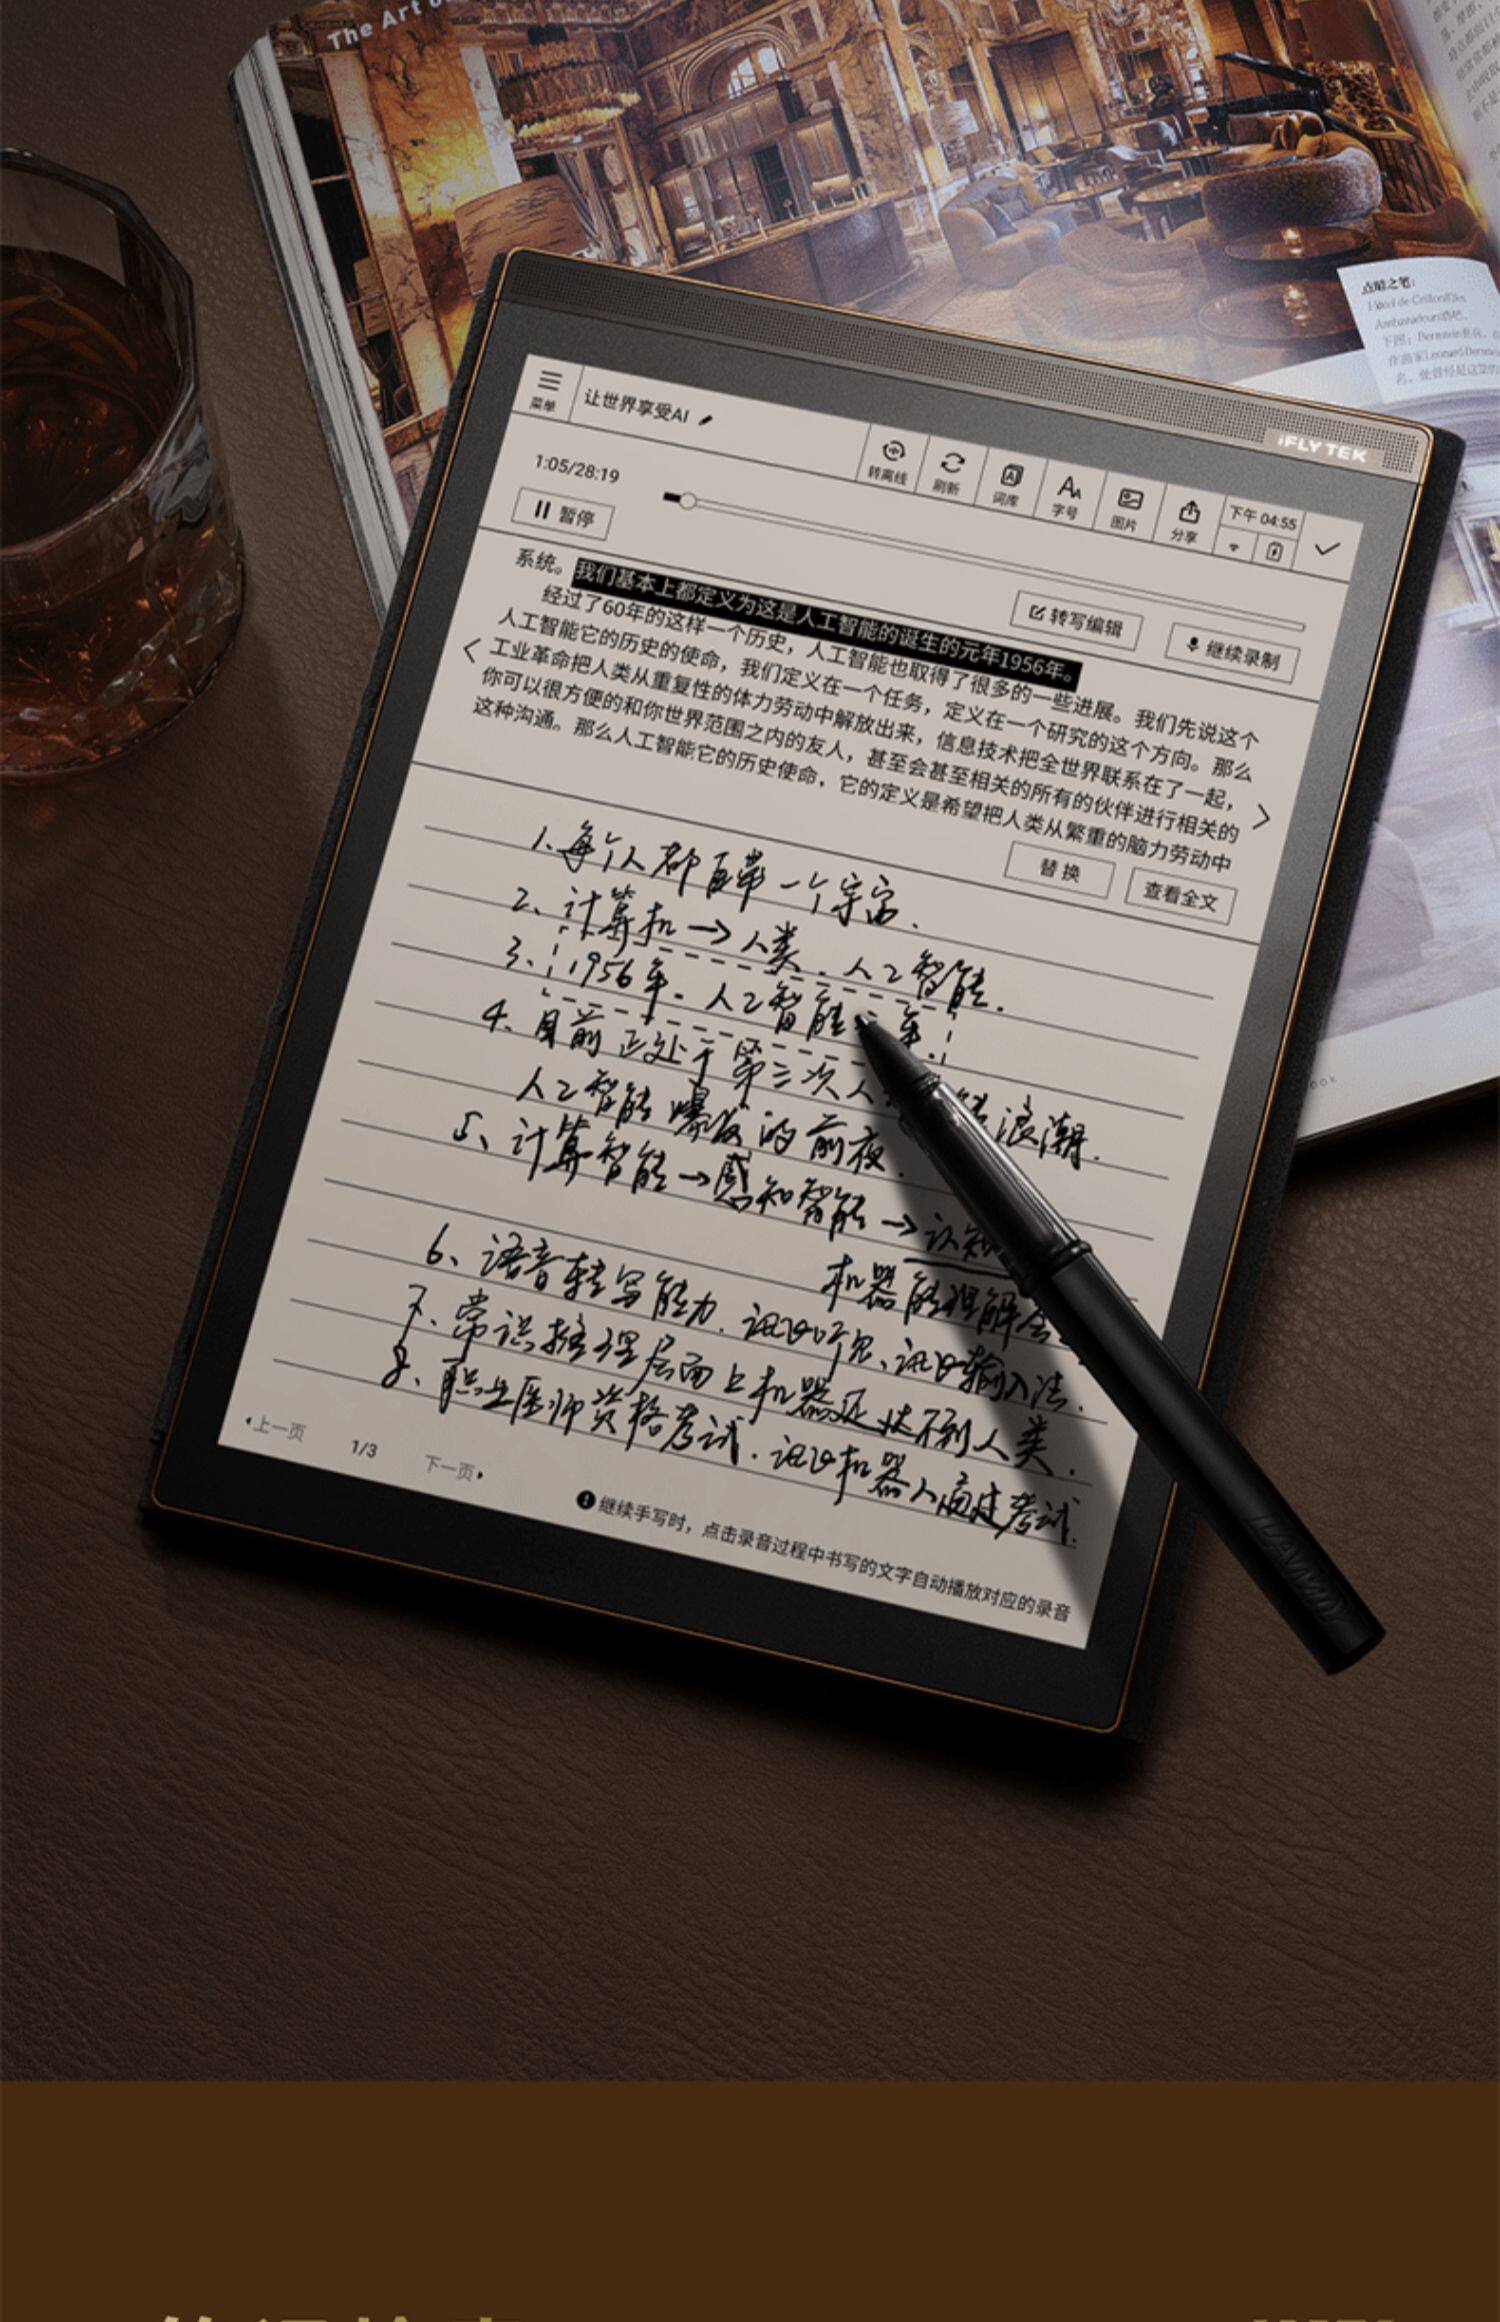 The Art o
点睛之笔：
iFLYTEK
菜单
让世界享受AI
转离线
刷新
词库
字号
图片
分享
下午 04:55
1:05/28:19
暂停
转写编辑
继续录制
系统。我们基本上都定义为这是人工智能的诞生的元年1956年。
经过了60年的这样一个历史，人工智能也取得了很多的一些进展。我们先说这个
人工智能它的历史的使命，我们定义在一个任务，定义在一个研究的这个方向。那么
工业革命把人类从重复性的体力劳动中解放出来，信息技术把全世界联系在了一起，
你可以很方便的和你世界范围之内的友人，甚至会甚至相关的所有的伙伴进行相关的
这种沟通。那么人工智能它的历史使命，它的定义是希望把人类从繁重的脑力劳动中
替换
查看全文
1.每个人都自带一个宇宙.
2、计算机→人类.人工智能.
3、1956年.人工智能元年.
4、目前正处于第三次人 浪潮.
人工智能爆发的前夜.
5、计算智能→感知智能→认知
机器能理解会
6、语音转写能力.讯飞听见、讯飞输入法.
7、常识推理层面上机器还达不到人类.
8、职业医师资格考试.讯飞机器人通过考试.
上一页
1/3
下一页
继续手写时，点击录音过程中书写的文字自动播放对应的录音
LAMY